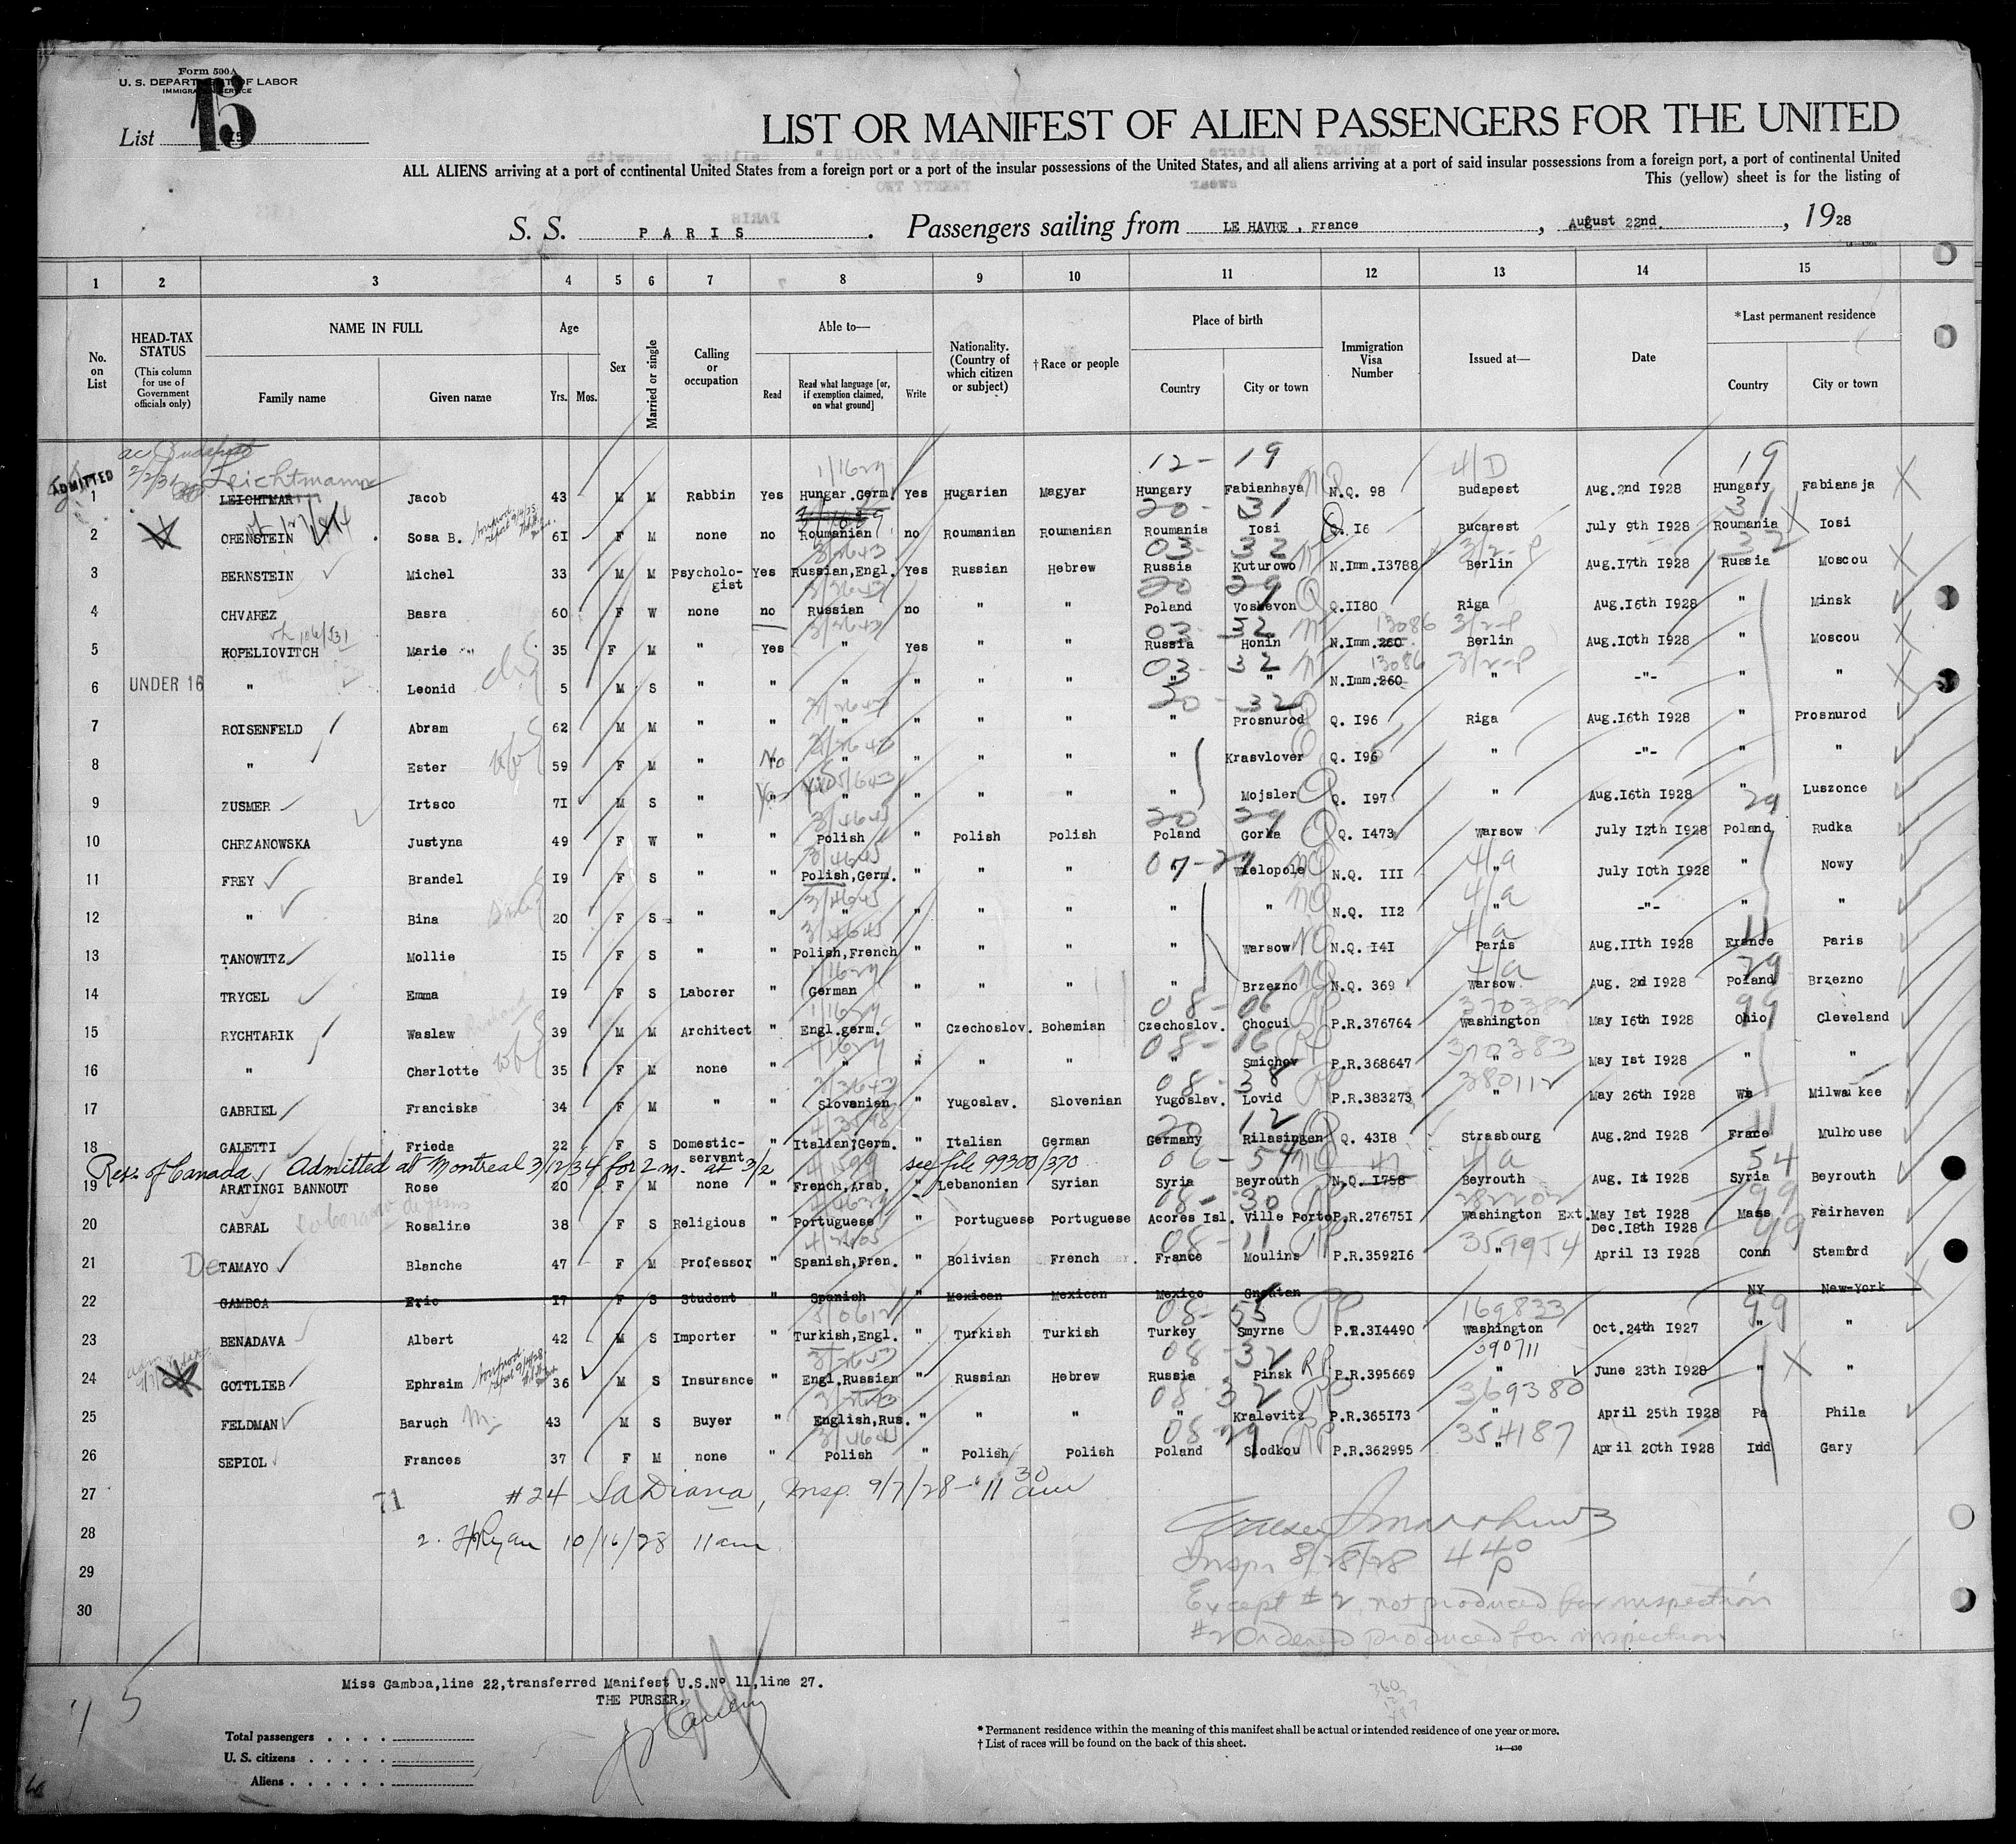 Form 500A
U. S. DEPARTMENT OF LABOR
IMMIGRATION SERVICE
List 15
LIST OR MANIFEST OF ALIEN PASSENGERS FOR THE UNITED
ALL ALIENS arriving at a port of continental United States from a foreign port or a port of the insular possessions of the United States, and all aliens arriving at a port of said insular possessions from a foreign port, a port of continental United
This (yellow) sheet is for the listing of
S. S. PARIS. Passengers sailing from LE HAVRE, France, August 22nd., 1928
1 2 3 4 5 6 7 8 9 10 11 12 13 14 15
No. on List
HEAD-TAX STATUS (This column for use of Government officials only)
NAME IN FULL Family name Given name
Age Yrs. Mos.
Sex
Married or single
Calling or occupation
Able to— Read Read what language [or, if exemption claimed, on what ground] Write
Nationality. (Country of which citizen or subject)
†Race or people
Place of birth Country City or town
Immigration Visa Number
Issued at—
Date
*Last permanent residence Country City or town
12- 19 4/D 19
Leichtmann
ADMITTED
1 LEICHTMAR Jacob 43 M M Rabbin Yes Hungar.Germ. Yes Hugarian Magyar Hungary Fabianhaya N.Q. 98 Budapest Aug.2nd I928 Hungary Fabianaja
20- 31 31
2 ORENSTEIN Sosa B. 6I F M none no Roumanian no Roumanian Roumanian Roumania Iosi Q. I6 Bucarest July 9th I928 Roumania Iosi
03- 32 3/2-P 32
3 BERNSTEIN Michel 33 M M Psycholo-gist Yes Russian,Engl. Yes Russian Hebrew Russia Kuturowo N.Imm.I3788 Berlin Aug.I7th I928 Russia Moscou
20 29
4 CHVAREZ Basra 60 F W none no Russian no " " Poland Voshevon Q.II80 Riga Aug.I6th I928 " Minsk
03- 32 13086 3/2-P
5 KOPELIOVITCH Marie 35 F M " Yes " Yes " " Russia Honin N.Imm.260 Berlin Aug.I0th I928 " Moscou
03- 32 13086 3/2-P
6 UNDER 16 " Leonid 5 M S " " " " " " " " N.Imm.260 " -"- " "
20- 32
7 ROISENFELD Abram 62 M M " " " " " " " Prosnurod Q. I96 Riga Aug.I6th I928 " Prosnurod
8 " Ester 59 F M " No " " " " " Krasvlover Q. I96 " -"- " "
9 ZUSMER Irtsco 7I M S " " " " " " " Mojsler Q. I97 " Aug.I6th I928 " Luszonce
20 29 29
10 CHRZANOWSKA Justyna 49 F W " " Polish " Polish Polish Poland Gorka Q. I473 Warsow July I2th I928 Poland Rudka
4/a
11 FREY Brandel I9 F S " " Polish,Germ. " " " " Wielopole N.Q. III " July I0th I928 " Nowy
4/a
12 " Bina 20 F S " " " " " " " " N.Q. II2 " -"- " "
4/a 11
13 TANOWITZ Mollie I5 F S " " Polish,French " " " " Warsow N.Q. I4I Paris Aug.IIth I928 France Paris
4/a 29
14 TRYCEL Emma I9 F S Laborer " German " " " " Brzezno N.Q. 369 Warsow Aug. 2nd I928 Poland Brzezno
08- 06 370382 99
15 RYCHTARIK Waslaw 39 M M Architect " Engl.germ. " Czechoslov. Bohemian Czechoslov. Chocui P.R.376764 Washington May I6th I928 Ohio Cleveland
08- 370383
16 " Charlotte 35 F M none " " " " " " Smichov P.R.368647 " May Ist I928 " "
08- 38 380112
17 GABRIEL Franciska 34 F M " " Slovenian " Yugoslav. Slovenian Yugoslav. Lovid P.R.383273 " May 26th I928 Wis Milwaukee
20 12 11
18 GALETTI Frieda 22 F S Domestic-servant " Italian,Germ. " Italian German Germany Rilasingen Q. 43I8 Strasbourg Aug.2nd I928 Frace Mulhouse
Res. of Canada, Admitted at Montreal 3/12/34 for 2 m. at 3/2 see file 99300/370
06- 54 4/a 54
19 ARATINGI BANNOUT Rose 20 F M none " French,Arab. " Lebanonian Syrian Syria Beyrouth N.Q. I758 Beyrouth Aug. Ist I928 Syria Beyrouth
08- 30 99
20 CABRAL Rosaline 38 F S Religious " Portuguese " Portuguese Portuguese Acores Isl. Ville Porto P.R.27675I Washington Ext.May Ist I928 Dec.I8th I928 Mass Fairhaven
08- 11 359954 99
21 De TAMAYO Blanche 47 F M Professor " Spanish,Fren. " Bolivian French France Moulins P.R.3592I6 " April I3 I928 Conn Stamford
22 GAMBOA Eric I7 F S Student " Spanish " Mexican Mexican Mexico NY New-York
08- 55 169833 99
23 BENADAVA Albert 42 M S Importer " Turkish,Engl. " Turkish Turkish Turkey Smyrne P.R.3I4490 Washington Oct.24th I927 " "
08- 32 390711
24 GOTTLIEB Ephraim 36 M S Insurance " Engl.Russian " Russian Hebrew Russia Pinsk P.R.395669 " June 23th I928 " "
08- 32 369380
25 FELDMAN Baruch 43 M S Buyer " English,Rus. " " " " Kralevitz P.R.365I73 " April 25th I928 Pa Phila
08- 29 354187
26 SEPIOL Frances 37 F M none " Polish " Polish Polish Poland Slodkou P.R.362995 " April 20th I928 Ind Gary
27 71 #24 LaDiana, Insp. 9/7/28 - 11 30 am
28 2. HRyan 10/16/28 11 am
29 Inspr 8/28/28 440 P
30 Except #2, not produced for inspection
#2 Ordered produced for inspection
Miss Gamboa,line 22,transferred Manifest U.S.Nº 11,line 27.
THE PURSER,
Total passengers
U. S. citizens
Aliens
* Permanent residence within the meaning of this manifest shall be actual or intended residence of one year or more.
† List of races will be found on the back of this sheet.
14—430